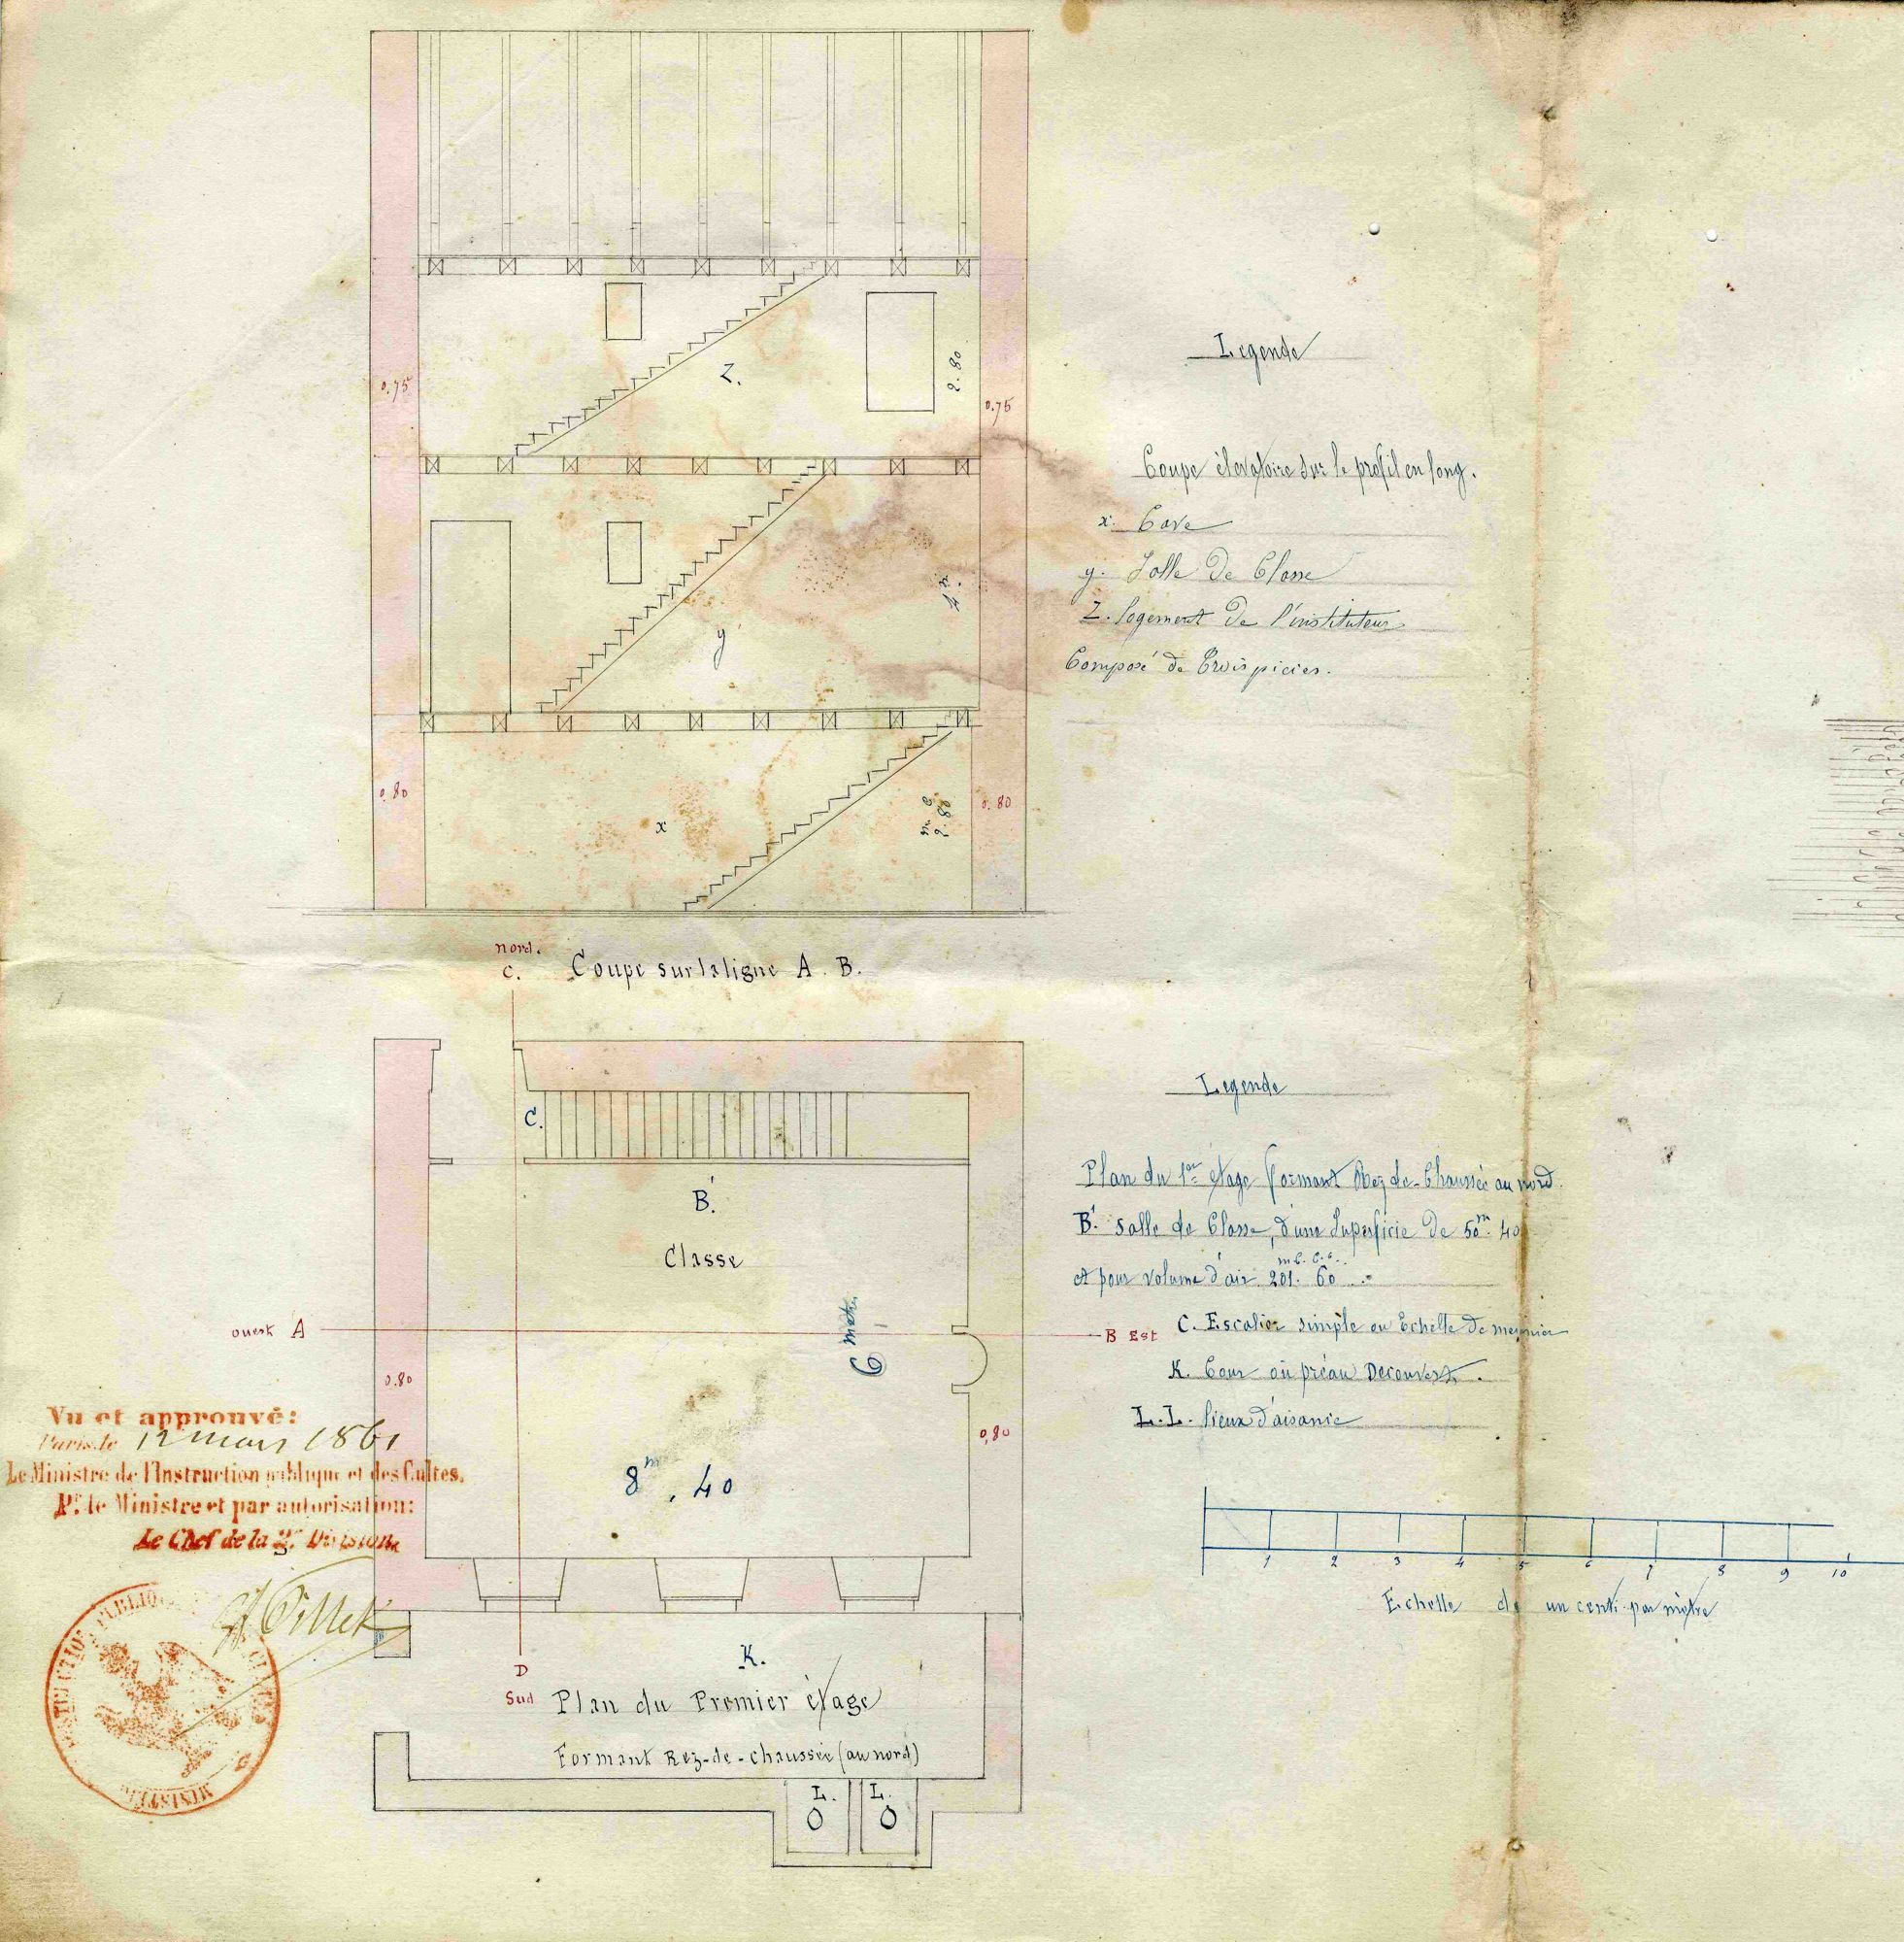 0.75
Z.
2.80
0.75
y
4 m.
0.80
x
m c
2.80
0.80
Legende
Coupe èlevatoire sur le profil en long.
x. Cave
y. Salle de Classe
Z. logement de l'instituteur
Composé de Trois pièces.
nord.
C. Coupe sur la ligne A. B.
C.
B'.
Classe
ouest A
B Est
6 metres
0.80
8m, 40
0,80
K.
D
Sud
Plan du Premier ètage
Formant Rez-de-chaussée (au nord)
L. L.
Legende
Plan du 1er ètage formant Rez-de-Chaussée au nord.
B'. salle de Classe, d'une Superficie de 50m. 40
et pour volume d'air 201. m c. 60 c. c.
C. Escalier simple ou Echelle de meunier
K. Cour où préau Decouvert.
L.L. lieux d'aisance
1 2 3 4 5 6 7 8 9 10
Echelle de un centi. par mètre
Vu et approuvé:
Paris, le 12 mars 1861
Le Ministre de l'Instruction publique et des Cultes.
Pr. le Ministre et par autorisation:
Le Chef de la 3e Division,
Pillet
MINISTÈRE INSTRUCTION PUBLIQUE CULTES